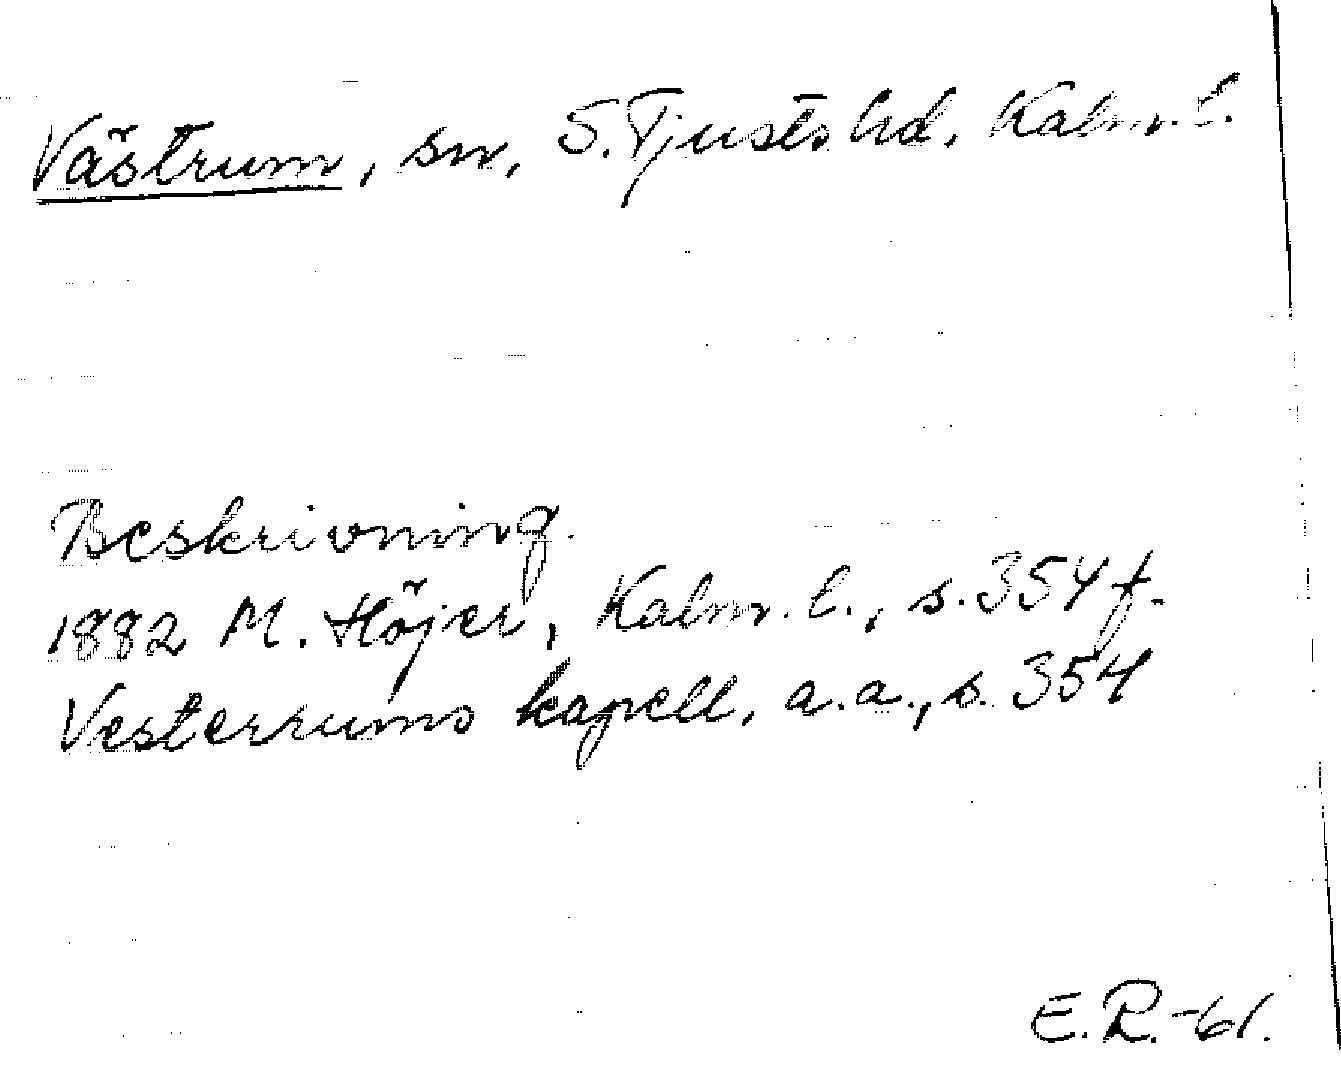 Västrum, sn, S. Tjusts hd, Kalm. l.
Beskrivning.
1882 M. Höjer, Kalm. l., s. 354 f.
Vesterrums kapell, a.a., s. 354
E.R.-61.